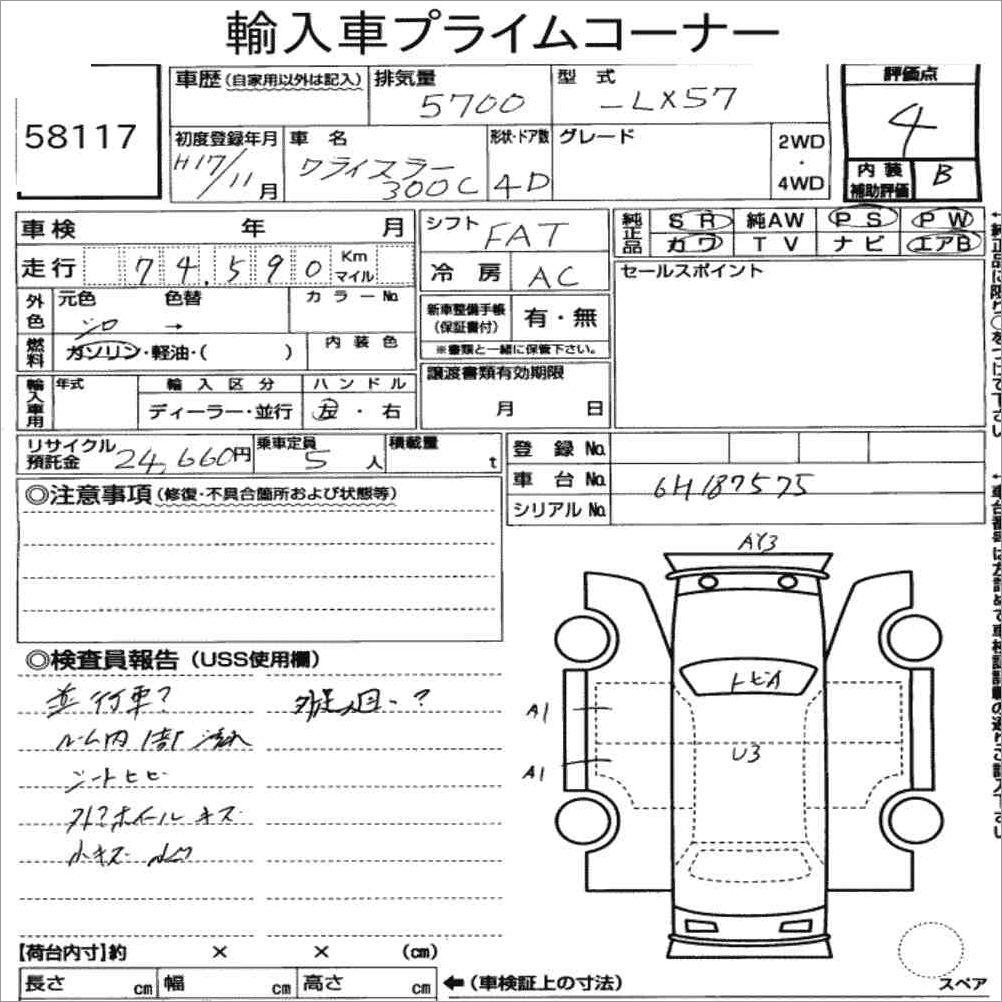 輸入車プライムコーナー
58117
車歴(自家用以外は記入)
排気量
5700
型 式
-LX57
評価点
4
初度登録年月
H17/11月
車 名
クライスラー
300C
形状・ドア数
4D
グレード
2WD
・
4WD
内装
補助評価
B
車検 年 月
シフト
FAT
純正品
SR 純AW PS PW
カワ TV ナビ エアB
走行 74,590 Km
マイル
冷 房
AC
セールスポイント
外色
元色 色替
シロ →
カラーNo.
新車整備手帳
(保証書付)
有・無
※書類と一緒に保管下さい。
燃料
ガソリン・軽油・( )
内装色
譲渡書類有効期限
月 日
輸入車用
年式
輸入区分
ディーラー・並行
ハンドル
左・右
リサイクル
預託金
24,660円
乗車定員
5人
積載量
t
登 録 No.
車 台 No.
6H187575
シリアル No.
◎注意事項(修復・不具合箇所および状態等)
◎検査員報告(USS使用欄)
並行車?
ルーム内
シートヒビ
ホイールキズ
小キズ
AY3
トビA
A1
U3
A1
【荷台内寸】約 × × (cm)
長さ cm 幅 cm 高さ cm
←(車検証上の寸法)
スペア